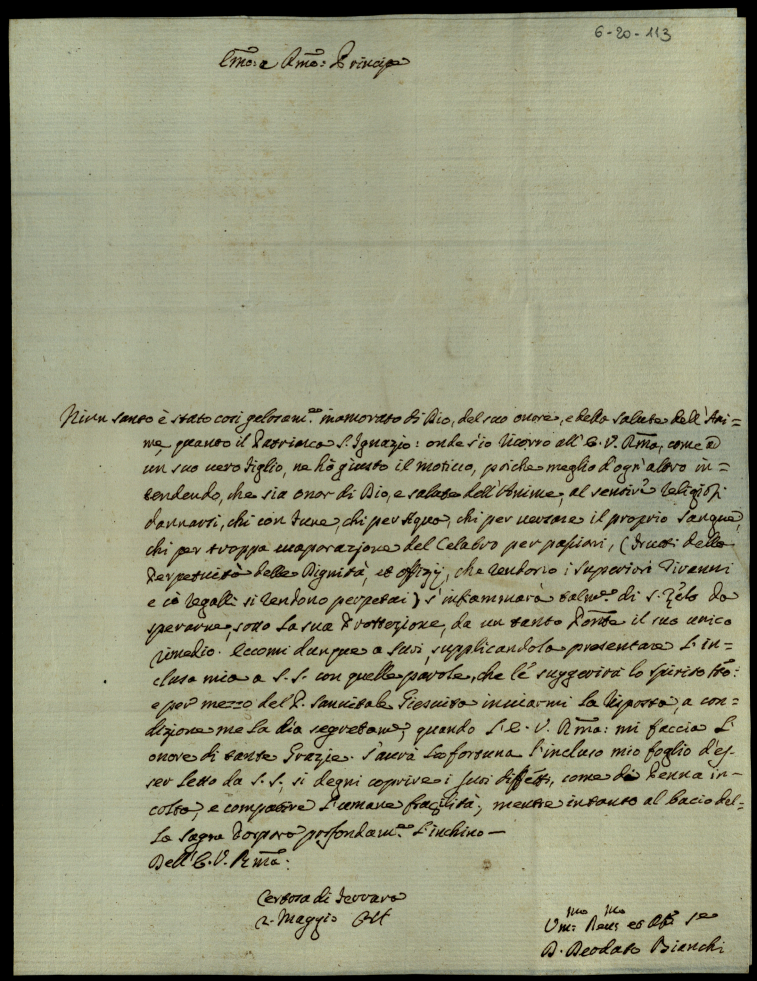 6-20-113
Emo: e Rmo: Principe
Niun santo è stato così gelosam.te inamorato di Dio, del suo onore, e della salute dell'Ani=
me, quanto il Patriarca S. Ignazio: onde s'io ricorro all'E. V. Rma, come a
un suo vero figlio, ne hò giusto il motivo, poiche meglio d'ogn'altro in=
tendendo, che sia onor di Dio, e salute dell'Anime, al sentire religiosi
dannarsi, chi con fune, chi per Aqua, chi per versare il proprio sangue,
chi per troppa evaporazione del Celabro per passioni, (frutti della
Perpetuità delle Dignità, et offizij, che rendono i Superiori Tiranni
e cò regalli si rendono perpetui) s'infiammarà talm.te di s. Zelo da
sperarne, sotto la sua Protezione, da un santo Ponte il suo unico
rimedio. Eccomi dunque a suoi, supplicandola presentare l'in=
clusa mia a S. S. con quelle parole, che le suggerirà lo spirito Sto:
e per mezzo del P. Sanvitale Giesuita inviarmi la risposta, a con=
dizione me la dia segretam.e, quando l'E. V. Rma: mi faccia l'
onore di tante Grazie. S'avrà la fortuna l'incluso mio foglio d'es=
ser letto da S. S., si degni coprire i suoi diffetti, come di Penna in=
colta, e compatire l'umana fragilità; mentre intanto al bacio del=
la sagra Porpora profondam.te l'inchino —
Dell'E. V. Rma:
Certosa di Ferrara
2. Maggio
Um: Devs et Obb Se
D. Deodato Bianchi